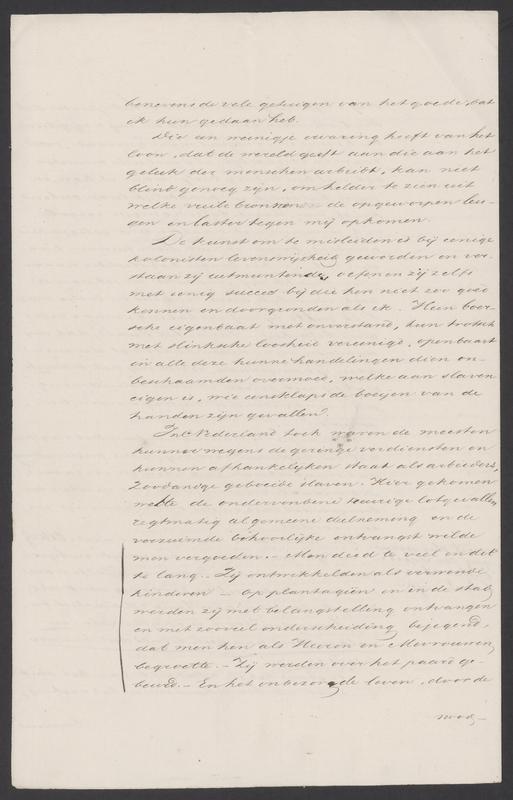 benevens de vele getuigen van het goede, dat
ik hun gedaan heb.
Die een weinigje ervaring heeft van het
loon, dat de wereld geeft aan die aan het
geluk der menschen arbeidt, kan niet
blind genoeg zijn, om helder te zien uit
welke vuile bronnen de opgeworpen leu-
gen en laster tegen mij opkomen.
De kunst om te misleiden is bij eenige
kolonisten levenswijsheid geworden en ver-
staan zij uitmuntende, oefenen zij zelfs
met eenig succes bij die hen niet zoo goed
kennen en doorgronden als ik. Hun boer-
sche eigenbaat met onverstand, hun trotsch
met slinksche loosheid vereenigd, openbaart
in alle deze hunne handelingen dien on-
beschaamden overmoed, welke aan slaven
eigen is, wie eensklaps de boeijen van de
handen zijn gevallen.
In Nederland toch waren de meesten
hunner wegens de geringe verdiensten en
hunnen afhankelijken staat als arbeiders,
Hier gekomen
wekte de ondervondene treurige lotgevallen
regtmatig algemeene deelneming en de
verzuimde behoorlijke ontvangst wilde
men vergoeden. – Men deed te veel en dit
te lang. – Zij ontwikkelden als verwende
kinderen – op plantagien en in de stad
werden zij met belangstelling ontvangen
en met zooveel onderscheiding bejegend,
dat men hen als Heeren en Mevrouwen
begroette. – Zij werden over het paard ge-
beurd. – En het onbezorgde leven, door de
nood-